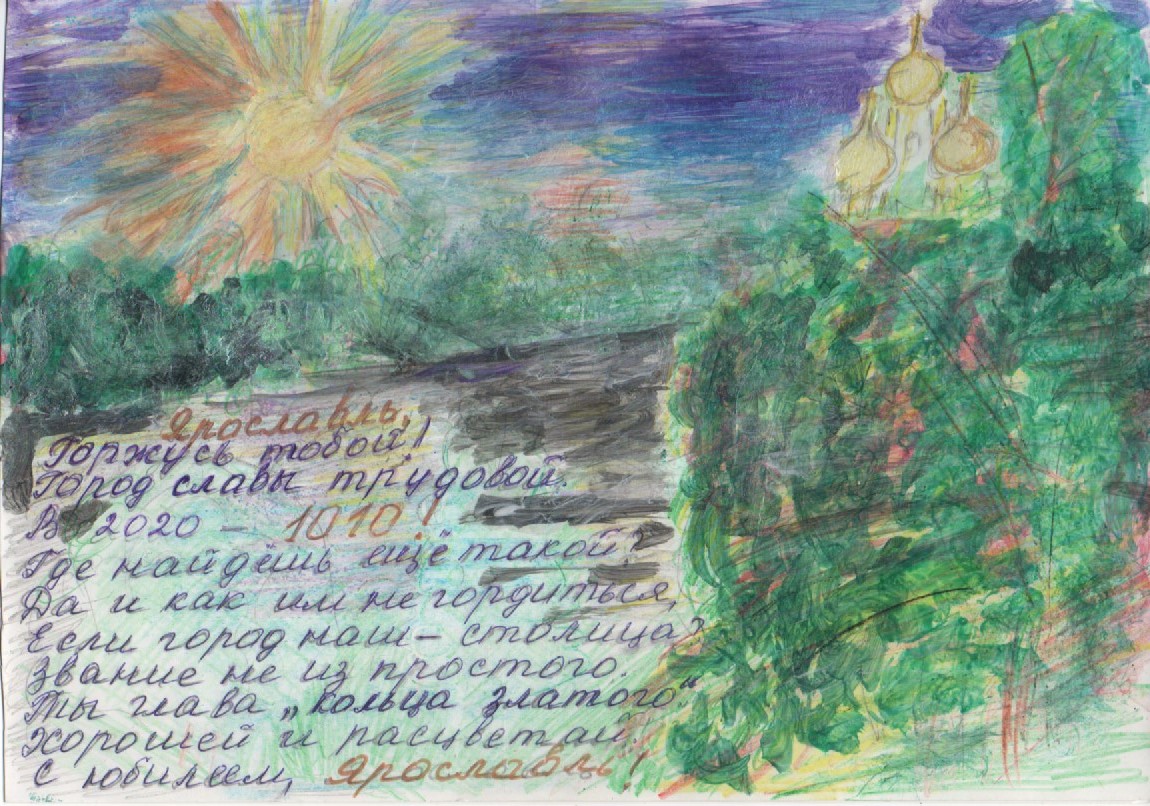 Ярославль,
Горжусь тобой!
Город славы трудовой.
В 2020 – 1010!
Где найдёшь ещё такой?
Да и как им не гордиться,
Если город наш – столица?
Звание не из простого.
Ты глава „Кольца златого“
Хорошей и расцветай.
С юбилеем, Ярославль!